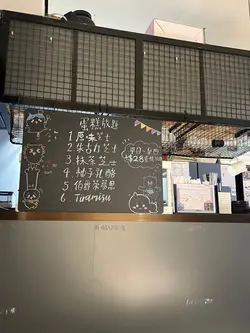 蛋糕放題
1 原味芝士
2 朱古力芝士
3 抹茶芝士
4. 柚子乳酪
5 伯爵茶慕思
6. Tiramisu